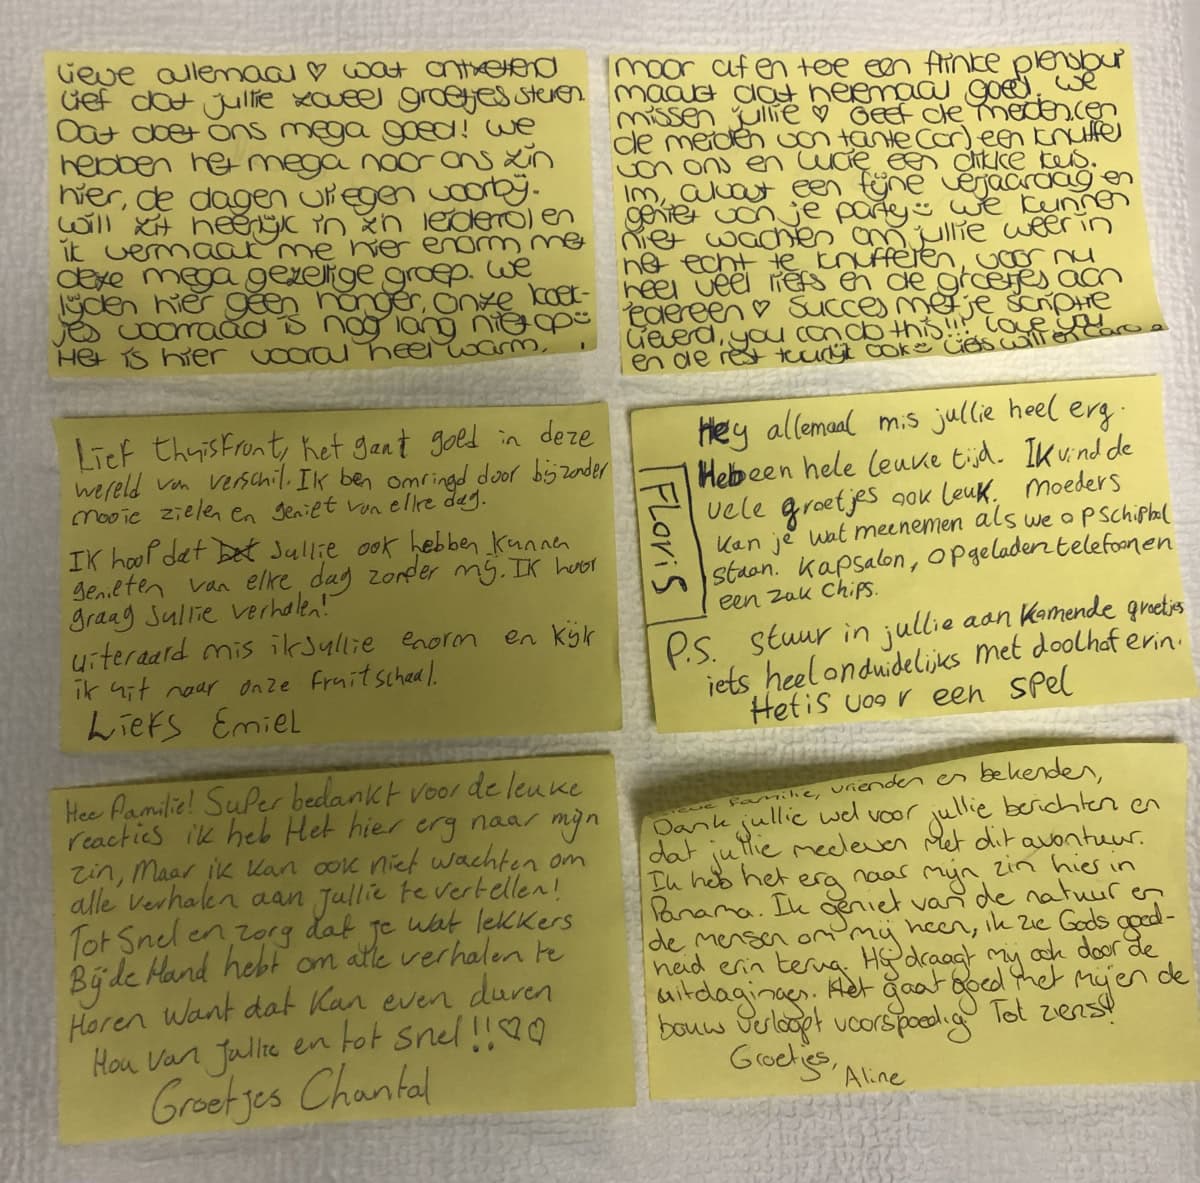 Lieve allemaal ♡ wat ontzettend
lief dat jullie zoveel groetjes sturen.
Dat doet ons mega goed! We
hebben het mega naar ons zin
hier, de dagen vliegen voorbij.
Will zit heerlijk in z'n leidersrol en
ik vermaak me hier enorm met
deze mega gezellige groep. We
lijden hier geen honger, onze koek-
jes voorraad is nog lang niet op☺
Het is hier vooral heel warm,
maar af en toe een flinke plensbui
maakt dat helemaal goed. We
missen jullie ♡ Geef de meiden (en
de meiden van tante Car) een knuffel
van ons en Lucie een dikke kus.
Im, alvast een fijne verjaardag en
geniet van je party☺ We kunnen
niet wachten om jullie weer in
het echt te knuffelen, voor nu
heel veel liefs en de groetjes aan
iedereen ♡ Succes met je scriptie
lieverd, you can do this!!! Love you
en de rest tuurlijk ook☺ Liefs Will en Caro
Lief thuisfront, het gaat goed in deze
wereld van verschil. Ik ben omringd door bijzonder
mooie zielen en geniet van elke dag.
Ik hoop dat jullie ook hebben kunnen
genieten van elke dag zonder mij. Ik hoor
graag jullie verhalen!
uiteraard mis ik jullie enorm en kijk
ik uit naar onze fruitschaal.
Liefs Emiel
Floris
Hey allemaal mis jullie heel erg.
Heb een hele leuke tijd. Ik vind de
vele groetjes ook leuk. Moeders
kan je wat meenemen als we op schiphol
staan. Kapsalon, opgeladen telefoon en
een zak chips.
P.S. stuur in jullie aankomende groetjes
iets heel onduidelijks met doolhof erin.
Het is voor een spel
Hee Familie! Super bedankt voor de leuke
reacties ik heb Het hier erg naar mijn
zin, Maar ik kan ook niet wachten om
alle verhalen aan jullie te vertellen!
Tot snel en zorg dat je wat lekkers
Bij de Hand hebt om alle verhalen te
Horen want dat kan even duren
Hou van jullie en tot snel!!♡♡
Groetjes Chantal
Lieve familie, vrienden en bekenden,
Dank jullie wel voor jullie berichten en
dat jullie meeleven met dit avontuur.
Ik heb het erg naar mijn zin hier in
Panama. Ik geniet van de natuur en
de mensen om mij heen, ik zie Gods goed-
heid erin terug. Hij draagt mij ook door de
uitdagingen. Het gaat goed met mij en de
bouw verloopt voorspoedig Tot ziens!
Groetjes,
Aline